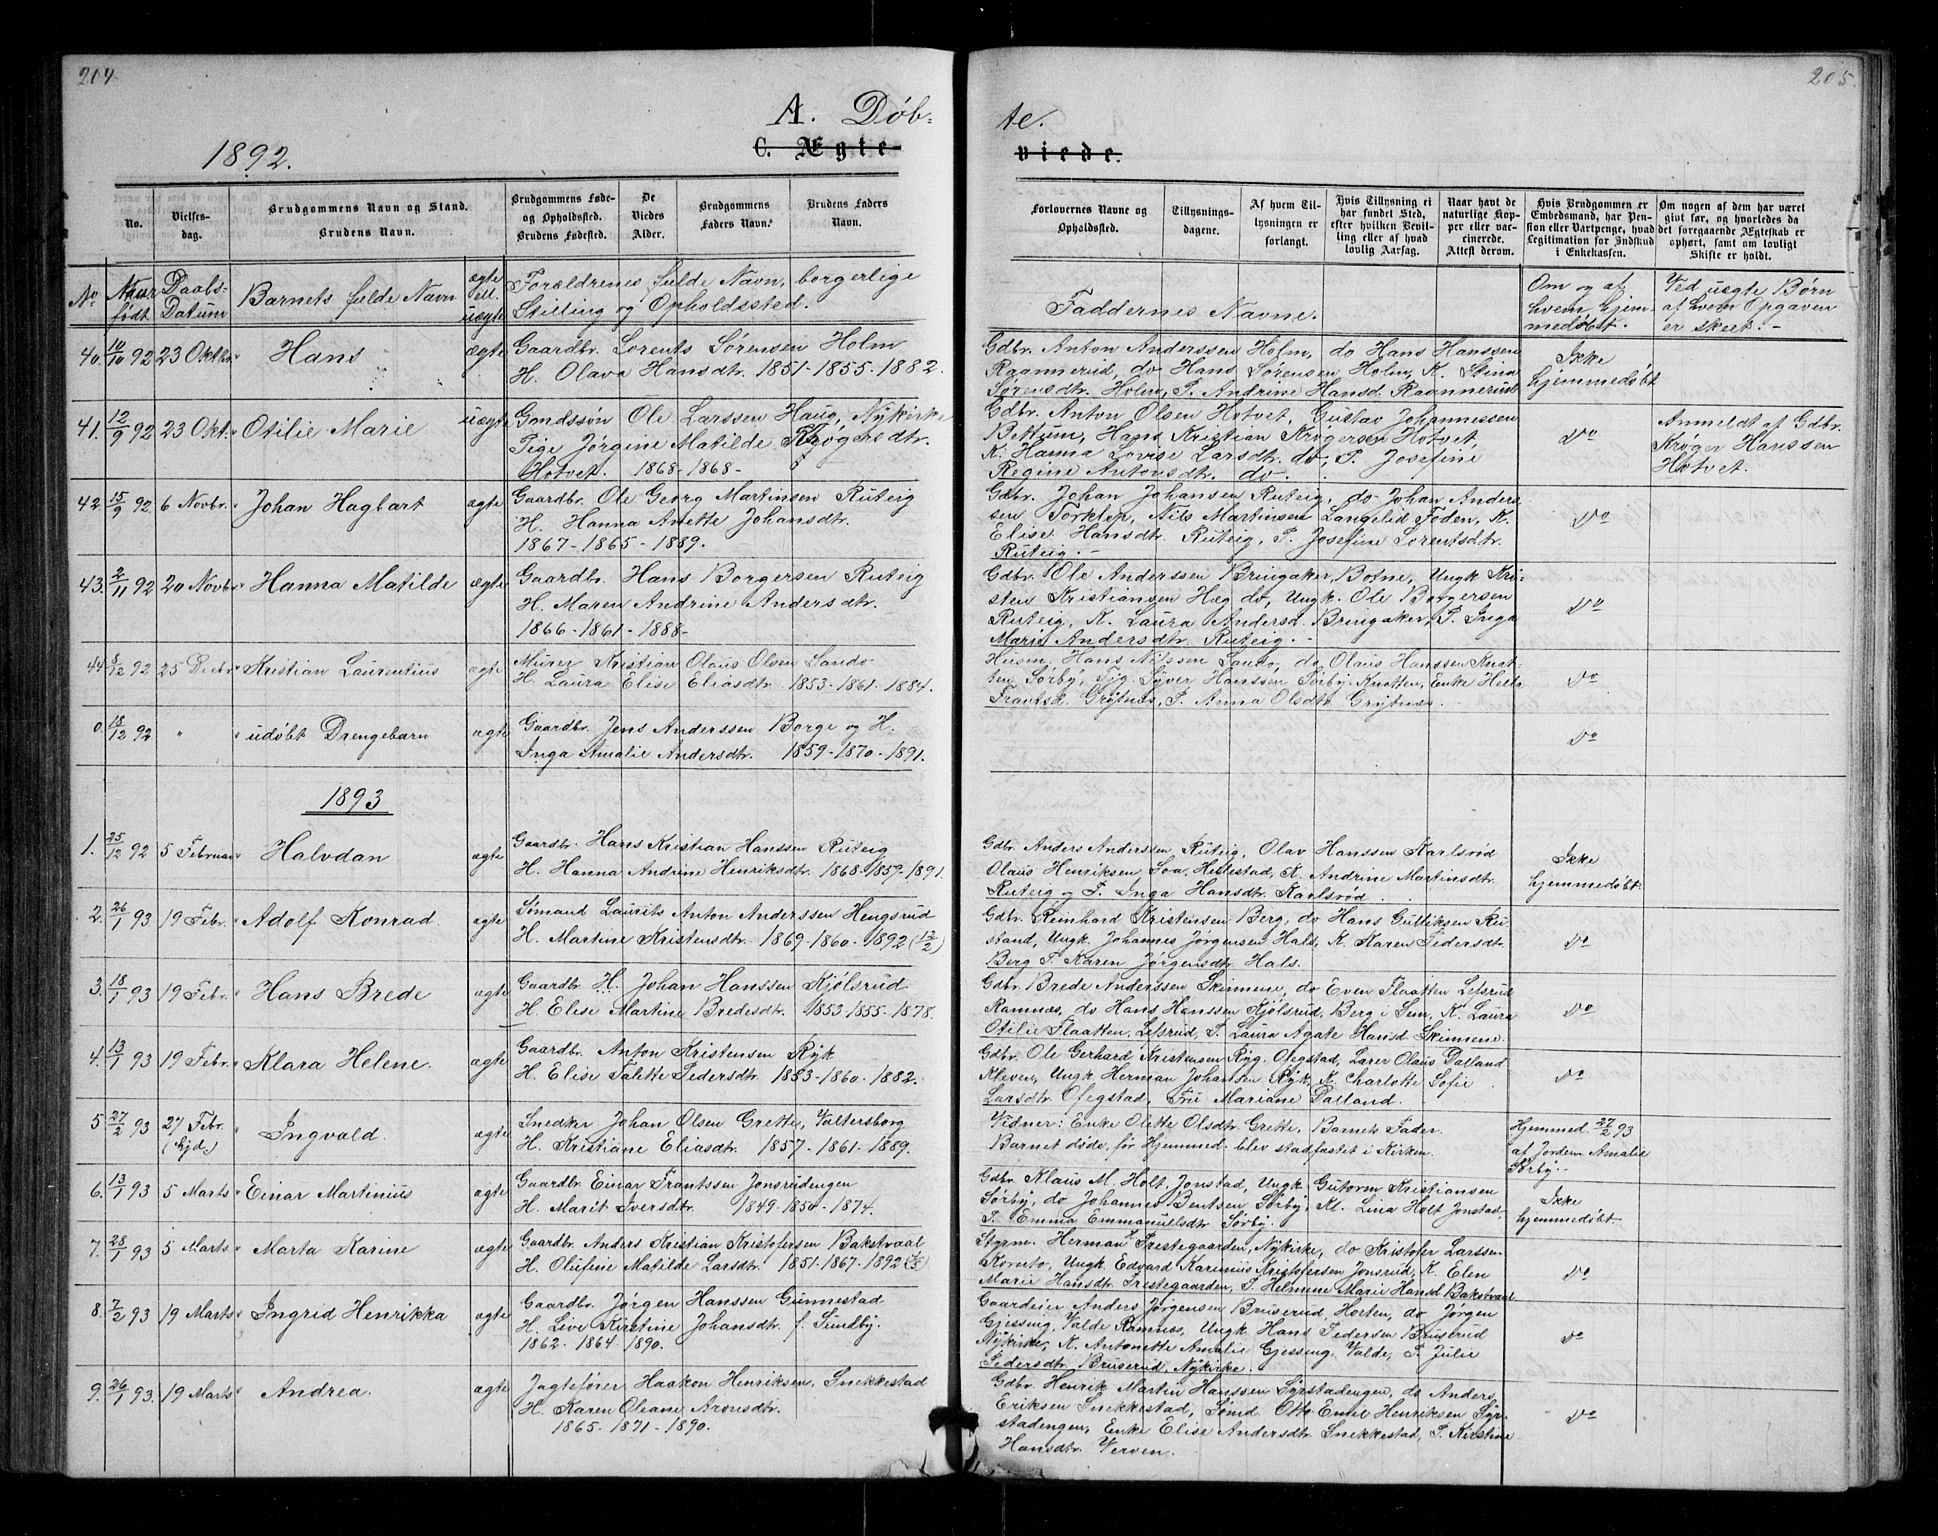 204
205
A. Døb-
te.
1892.
C. Ægte-
viede.
No.
Vielses-
dag.
Brudgommens Navn og Stand.
Brudens Navn.
Brudgommens Føde-
og Opholdssted.
Brudens Fødested.
De
Viedes
Alder.
Brudgommens
Faders Navn.
Brudens Faders
Navn.
Forlovernes Navne og
Opholdssted.
Tillysnings-
dagene.
Af hvem Til-
lysningen er
forlangt.
Hvis Tillysning ei
har fundet Sted,
efter hvilken Bevil-
ling eller af hvad
lovlig Aarsag.
Naar havt de
naturlige Kop-
per eller vac-
cinerede.
Attest derom.
Hvis Brudgommen er
Embedsmand, har Pen-
sion eller Vartpenge, hvad
Legitimation for Indskud
i Enkekassen.
Om nogen af dem har været
givt før, og hvorledes da
det foregaaende Ægteskab er
ophørt, samt om lovligt
Skifte er holdt.
No
Naar
født
Daabs-
Datum
Barnets fulde Navn
ægte
ell.
uægte
Forældrenes fulde Navn, borgerlige
Stilling og Opholdssted.
Faddernes Navne.
Om og af
hvem hjem-
medøbt.
Ved uægte Børn
af hvem Opgaven
er skeet.-
40. 10/10 92 23 Oktbr. Hans ægte
Gaardbr. Lorents Sørensen Holm
H. Olava Hansdtr. 1851-1855-1882.
Gdbr. Anton Anderssen Holm, do Hans Hanssen
Raannerud, do Hans Sørensen Holm, K. Stina
Sørensdtr. Holm, P. Andrine Hansd. Raannerud
Ikke
hjemmedøbt
41. 12/9 92 23 Okt. Otilie Marie uægte
Ole Larssen Haug, Nykirke
Pige Jørgine Matilde Krøgersdtr.
Hotvet. 1868-1868-
Gdbr. Anton Olsen Hotvet, Gustav Johannessen
Bettum, Hans Kristian Krøgersen Hotvet,
K. Hanna Lovise Larsdtr. do, P. Josefine
Regine Antonsdtr. do-.
Do
Anmeldt af Gdbr.
Krøger Hanssen
Hotvet.
42. 15/9 92 6 Novbr. Johan Hagbart ægte
Gaardbr. Ole Georg Martinsen Ruteig
H. Hanna Anette Johansdtr.
1867-1865-1889.
Gdbr. Johan Johansen Ruteig, do Johan Anders-
sen Torklep, Nils Martinsen Langelid Foden, K.
Elise Hansdtr. Ruteig, P. Josefine Lorentsdtr.
Ruteig.-
Do
43. 2/11 92 20 Novbr Hanna Matilde ægte
Gaardbr. Hans Borgersen Ruteig
H. Maren Andrine Andersdtr.
1866-1861-1888-
Gdbr. Ole Anderssen Bringaker, Botne, Ungk. Kri-
sten Kristiansen Hæg do, Ungk. Ole Borgersen
Ruteig, K. Laura Andersd. Bringaker, P. Inga
Marie Andersdtr. Ruteig.-
Do
44. 8/12 92 25 Decbr. Kristian Laurentius ægte
Murer Kristian Olaus Olsen Sando
H. Laura Elise Eliasdtr. 1853-1861-1884.
Husm. Hans Nilssen Sando, do Olaus Hanssen Knat-
ten, Sørby, Tjg. Syver Hanssen Sørby Knatten, Enke Helle
Frantsd. Grytnes, P. Anna Olsdtr. Grytnes.
Do
0. 18/12 92 " udøbt Drengebarn ægte
Gaardbr. Jens Anderssen Borge og H.
Inga Amalie Andersdtr. 1859-1870-1891.
Do
1893
1. 25/12 92 5 Februar Halvdan ægte
Gaardbr. Hans Kristian Hanssen Ruteig
H. Hanna Andrine Henriksdtr. 1868-1857-1891.
Gdbr. Anders Anderssen, Ruteig, Olav Hanssen Karlsrød
Olaus Henriksen, Hillestad, K. Andrine Martinsdtr.
Ruteig og P. Inga Hansdtr. Karlsrød.
Ikke
hjemmedøbt.
2. 26/1 93 19 Febr. Adolf Konrad. ægte
Sømand Laurits Anton Anderssen Hengsrud
H. Martine Kristensdtr. 1869-1860-1892 (12/2)
Gdbr. Reinhard Kristensen Berg, do Hans Gulliksen Ru-
stand, Ungk. Johannes Jørgensen Hals, K. Karen Pedersdtr.
Berg P. Karen Jørgensdtr. Hals.
Do
3. 18/1 93 19 Febr. Hans Brede ægte
Gaardbr. H. Johan Hanssen Kjølsrud
H. Elise Martine Bredesdtr. 1853-1855-1878.
Gdbr. Brede Anderssen Skinnene, do Even Flaatten Lefsrud
Ramnæs, do Hans Hanssen Kjølsrud, Berg i Sem, K. Laura
Otilie Flaatten, Lefsrud, P. Laura Agate Hansd. Skinnene.
Do
4. 13/1 93 19 Febr. Klara Helene. ægte
Gaardbr. Anton Kristensen Ryk
H. Elise Talette Pedersdtr. 1853-1860-1882.
Gdbr. Ole Gerhard Kristensen Ryg. Ofegstad, Lærer Olaus Dalland
Kleven, Ungk Herman Johansen Ryk, K. Charlotte Sofie
Larsdtr. Ofegstad, Fru Mariane Dalland.
Do
5 27/2 93 27 Febr.
(hjd.)
Ingvald. ægte
Snedker Johan Olsen Grette, Valtersborg
H. Kristiane Eliasdtr. 1857-1861-1889.
Vidner: Enke Olette Olsdtr. Grette, Barnets Fader.
Barnet døde, før Hjemmed. blev stadfæstet i Kirken.
Hjemmed. 27/2 93
af Jordem. Amalie
Sørby.-
6. 13/1 93 5 Marts Einar Martinius ægte
Gaardbr. Einar Frantssen Jonsrudengen
H. Marit Iversdtr. 1849-1850-1874.
Gdbr. Klaus M. Holt Jonstad, Ungk. Gutorm Kristiansen
Sørby, do Johannes Bentsen Sørby, K. Lina Holt Jonstad,
P. Emma Emmanuelsdtr. Sørby.
Ikke
hjemmedøbt.
7. 28/1 93 5 Marts Marta Karine ægte
Gaardbr. Anders Kristian Kristofersen Bakstvaal
H. Olefine Matilde Larsdtr. 1851-1867-1892
Styrm. Herman Prestegaarden, Nykirke, do Kristofer Larssen
Kornto, Ungk. Edvard Karinius Kristofersen Jonsrud, K. Elen
Marie Hansdtr. Prestegaarden, P. Helmine Marie Hansd. Bakstvaal
Do
8. 7/2 93 19 Marts Ingrid Henrikka ægte
Gaardbr. Jørgen Hanssen Gunnestad
H. Live Kirstine Johansdtr. f. Sundby.
1862-1864-1890.
Gaardeier Anders Jørgensen Bruserud, Horten, do Jørgen
Gjessing, Valde Ramnæs, Ungk. Hans Pedersen Bruserud
Nykirke, K. Antonette Amalie Gjessing, Valde, P. Julie
Pedersdtr. Bruserud, Nykirke.
Do
9. 26/1 93. 19 Marts Andrea. ægte
Jagtefører Haakon Henriksen, Snekkestad
H. Karen Oleane Aronsdtr.
1865-1871-1890.
Gdbr. Henrik Martin Hanssen Syrstadengen, do Anders
Eriksen Snekkestad, Sømd. Otto Emil Henriksen Syr-
stadengen, Enke Elise Andersdtr. Snekkestad, P. Kirstine
Hansdtr. Verven.
Do